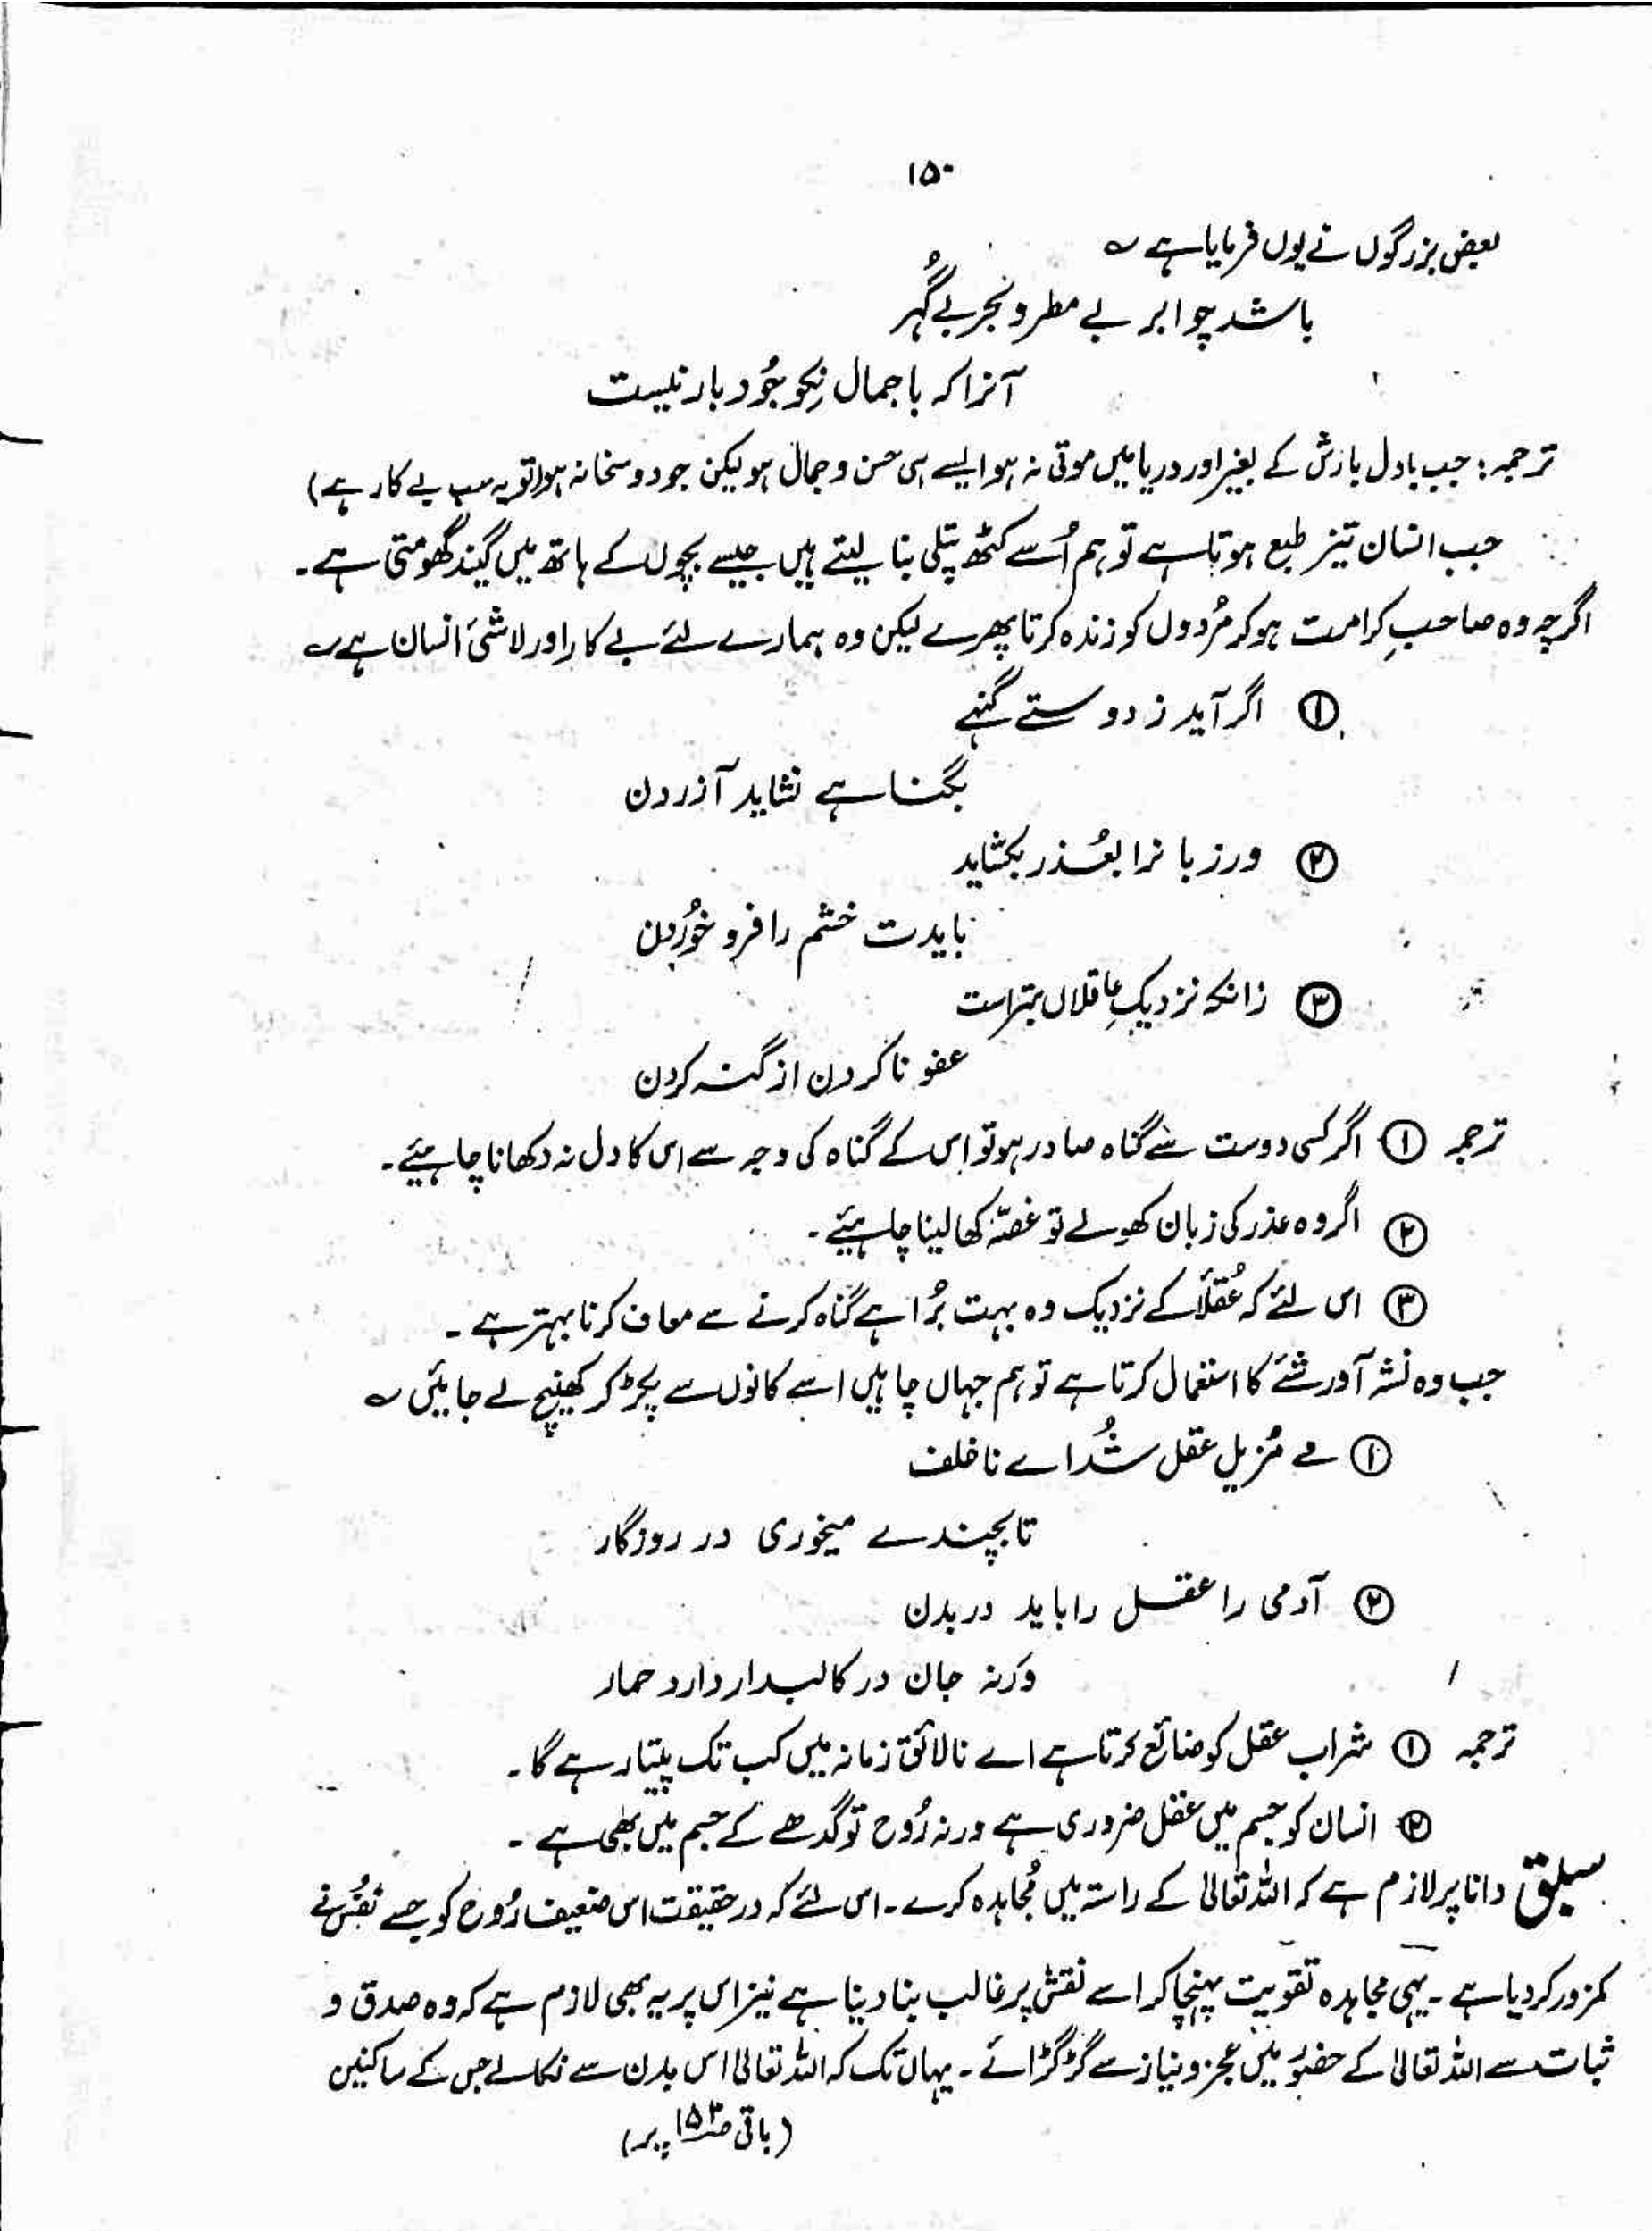 ۱۵۰
بعض بزرگوں نے یوں فرمایا ہے ؎
باشد چو ابر بے مطر و بحر بے گُہر
آنرا کہ باجمال نِکو جُود بار نیست
ترجمہ: جب بادل بارش کے بغیر اور دریا میں موتی نہ ہو ایسے ہی حسن و جمال ہو لیکن جود و سخا نہ ہو تو یہ سب بے کار ہے)
جب انسان تیز طبع ہوتا ہے تو ہم اُسے کٹھ پتلی بنا لیتے ہیں جیسے بچوں کے ہاتھ میں گیند گھومتی ہے۔
اگرچہ وہ صاحبِ کرامت ہو کر مُردوں کو زندہ کرتا پھرے لیکن وہ ہمارے لئے بے کار اور لاشئ انسان ہے ؎
① اگر آید ز دوستے گنہے
بگناہے نشاید آزردن
② ور زبا نرا بعُذر بکشاید
بایدت خشم را فرو خُوردن
③ زانکہ نزدیکِ عاقلاں بتراست
عفو ناکردن از گنہ کردن
ترجمہ ① اگر کسی دوست سے گناہ صادر ہو تو اس کے گناہ کی وجہ سے اس کا دل نہ دکھانا چاہیئے۔
② اگر وہ عذر کی زبان کھولے تو غصّہ کھا لینا چاہیئے۔
③ اس لئے کہ عُقلاَ کے نزدیک وہ بہت بُرا ہے گناہ کرنے سے معاف کرنا بہتر ہے۔
جب وہ نشہ آور شئے کا استعمال کرتا ہے تو ہم جہاں چاہیں اسے کانوں سے پکڑ کر کھینچ لے جائیں ؎
① مے مُزیلِ عقل شُد اے ناخلف
تا بچندے میخوری در روزگار
② آدمی را عقل را باید در بدن
ورنہ جان در کالبدار دارد حمار
ترجمہ ① شراب عقل کو ضائع کرتا ہے اے نالائق زمانہ میں کب تک پیتا رہے گا۔
② انسان کو جسم میں عقل ضروری ہے ورنہ رُوح تو گدھے کے جسم میں بھی ہے۔
سبق دانا پر لازم ہے کہ اللہ تعالیٰ کے راستہ میں مُجاہدہ کرے۔ اس لئے کہ درحقیقت اس ضعیف رُوح کو جسے نفُس نے
کمزور کر دیا ہے۔ یہی مجاہدہ تقویت پہنچا کر اسے نفس پر غالب بنا دینا ہے نیز اس پر یہ بھی لازم ہے کہ وہ صدق و
ثبات سے اللہ تعالیٰ کے حضوُر میں عجز و نیاز سے گڑگڑائے۔ یہاں تک کہ اللہ تعالیٰ اس بدن سے نکالے جس کے ساکنین
(باقی صـ۱۵۳ پر)